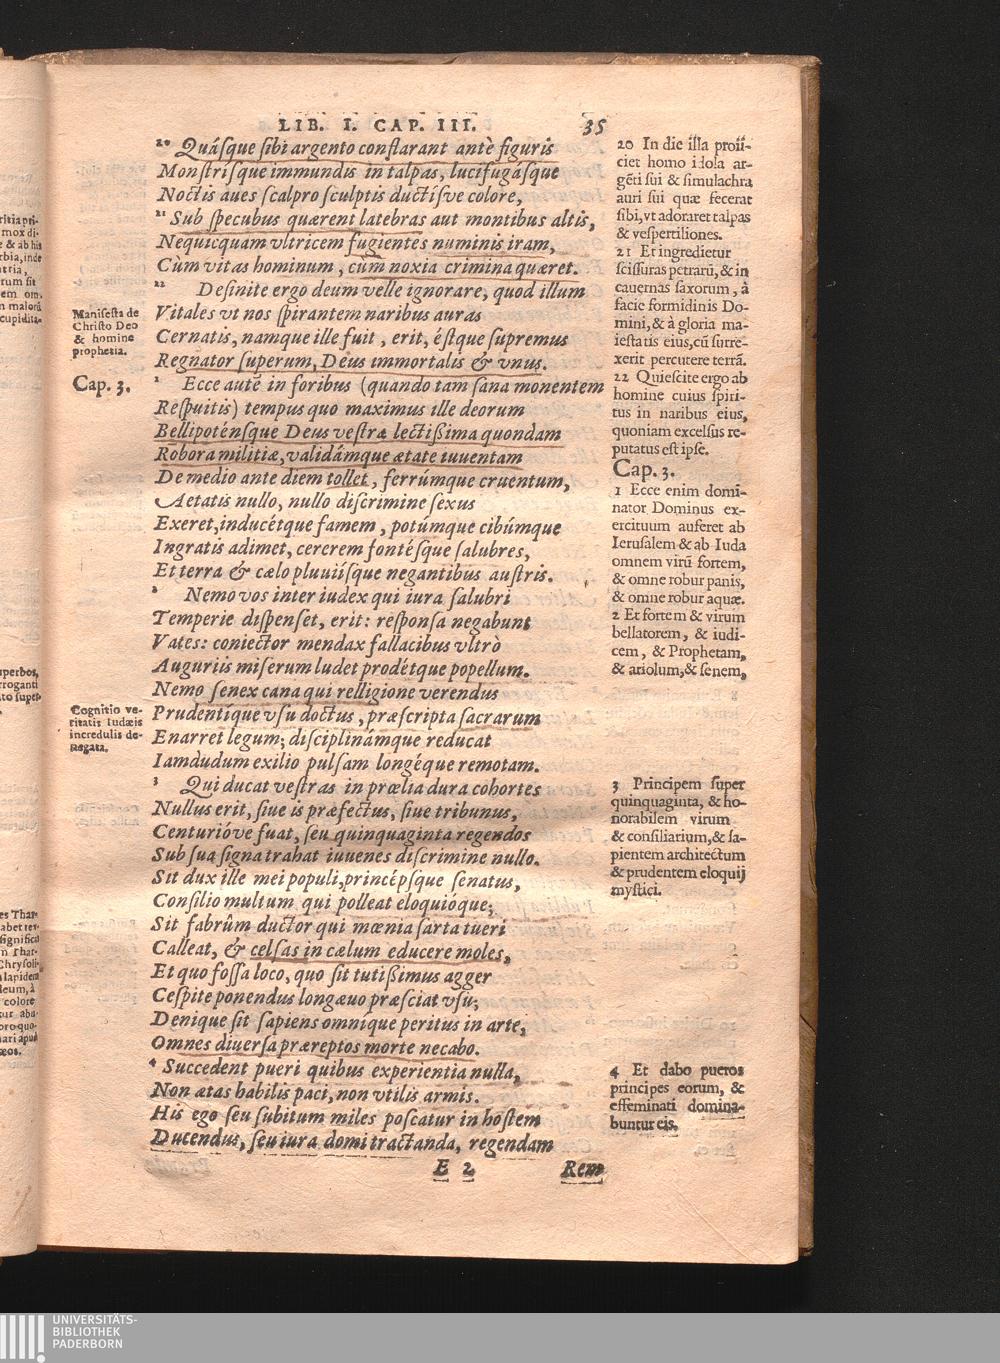 LIB. I. CAP. III. 35
²⁰ Quáſque ſibi argento conflarant antè figuris
Monſtriſque immundis in talpas, lucifugáſque
Noctis aues ſcalpro ſculptis ductiſve colore,
²¹ Sub ſpecubus quærent latebras aut montibus altis,
Nequicquam vltricem fugientes numinis iram,
Cùm vitas hominum, cùm noxia crimina quæret.
²² Deſinite ergo deum velle ignorare, quod illum
Vitales vt nos ſpirantem naribus auras
Cernatis, namque ille fuit, erit, éſtque ſupremus
Regnator ſuperum, Deus immortalis & vnus.
¹ Ecce autē in foribus (quando tam ſana monentem
Reſpuitis) tempus quo maximus ille deorum
Bellipoténſque Deus veſtræ lectiſſima quondam
Robora militiæ, validámque ætate iuuentam
De medio ante diem tollet, ferrúmque cruentum,
Aetatis nullo, nullo diſcrimine ſexus
Exeret, inducétque famem, potúmque cibúmque
Ingratis adimet, cererem fontéſque ſalubres,
Et terra & cælo pluuiíſque negantibus auſtris.
² Nemo vos inter iudex qui iura ſalubri
Temperie diſpenſet, erit: reſponſa negabunt
Vates: coniector mendax fallacibus vltrò
Auguriis miſerum ludet prodétque popellum.
Nemo ſenex cana qui relligione verendus
Prudentíque vſu doctus, præſcripta ſacrarum
Enarret legum; diſciplinámque reducat
Iamdudum exilio pulſam longéque remotam.
³ Qui ducat veſtras in prœlia dura cohortes
Nullus erit, ſiue is præfectus, ſiue tribunus,
Centurióve fuat, ſeu quinquaginta regendos
Sub ſua ſigna trahat iuuenes diſcrimine nullo.
Sit dux ille mei populi, princépſque ſenatus,
Conſilio multum qui polleat eloquióque;
Sit fabrûm ductor qui mœnia ſarta tueri
Calleat, & celſas in cælum educere moles,
Et quo foſſa loco, quo ſit tutiſſimus agger
Ceſpite ponendus longæuo præſciat vſu;
Denique ſit ſapiens omnique peritus in arte,
Omnes diuerſa præreptos morte necabo.
⁴ Succedent pueri quibus experientia nulla,
Non ætas habilis paci, non vtilis armis.
His ego ſeu ſubitum miles poſcatur in hoſtem
Ducendus, ſeu iura domi tractanda, regendam
E 2 Rem
Manifeſta de
Chriſto Deo
& homine
prophetia.
Cap. 3.
Cognitio ve-
ritatis Iudæis
incredulis de-
negata.
20 In die illa proii-
ciet homo idola ar-
gēti ſui & ſimulachra
auri ſui quæ fecerat
ſibi, vt adoraret talpas
& veſpertiliones.
21 Et ingredietur
ſciſſuras petrarū, & in
cauernas ſaxorum, à
facie formidinis Do-
mini, & à gloria ma-
ieſtatis eius, cū ſurre-
xerit percutere terrā.
22 Quieſcite ergo ab
homine cuius ſpiri-
tus in naribus eius,
quoniam excelſus re-
putatus eſt ipſe.
Cap. 3.
1 Ecce enim domi-
nator Dominus ex-
ercituum auferet ab
Ieruſalem & ab Iuda
omnem virū fortem,
& omne robur panis,
& omne robur aquæ.
2 Et fortem & virum
bellatorem, & iudi-
cem, & Prophetam,
& ariolum, & ſenem,
3 Principem ſuper
quinquaginta, & ho-
norabilem virum
& conſiliarium, & ſa-
pientem architectum
& prudentem eloquij
myſtici.
4 Et dabo pueros
principes eorum, &
effeminati domina-
buntur eis.
UNIVERSITÄTS-
BIBLIOTHEK
PADERBORN